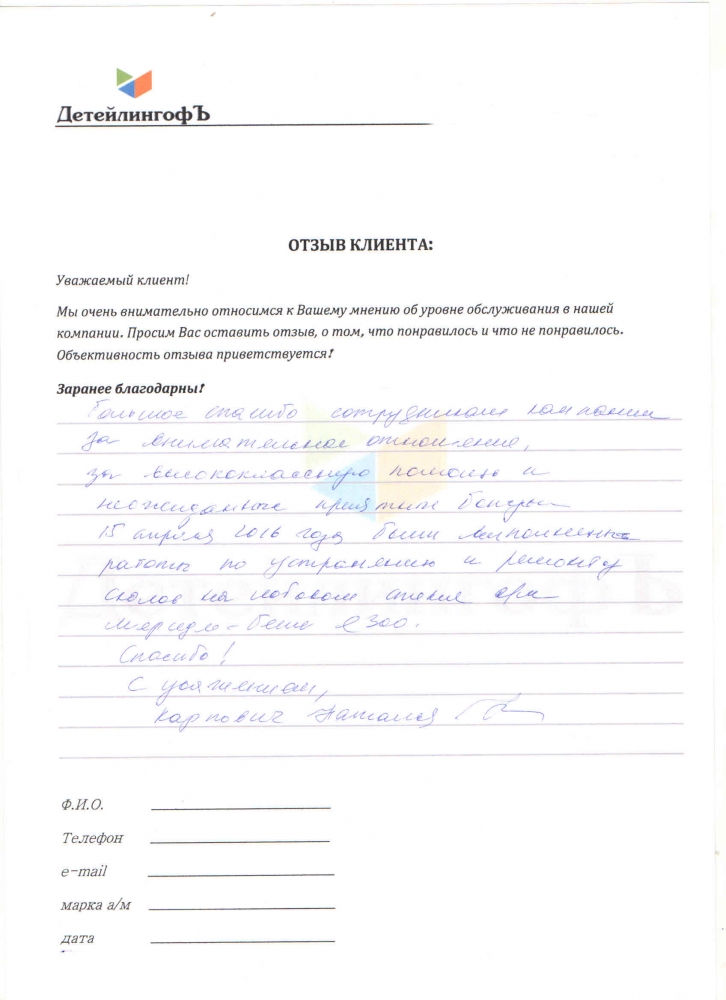 ДетейлингофЪ
ОТЗЫВ КЛИЕНТА:
Уважаемый клиент!
Мы очень внимательно относимся к Вашему мнению об уровне обслуживания в нашей
компании. Просим Вас оставить отзыв, о том, что понравилось и что не понравилось.
Объективность отзыва приветствуется!
Заранее благодарны!
Большое спасибо сотрудникам компании
за внимательное отношение,
за высококлассную помощь и
неожиданные приятные бонусы
15 апреля 2016 года были выполнены
работы по устранению и ремонту
сколов на лобовом стекле
Мерседес-Бенс 300.
Спасибо!
С уважением,
Карпович Наталья
Ф.И.О.
Телефон
e-mail
марка а/м
дата